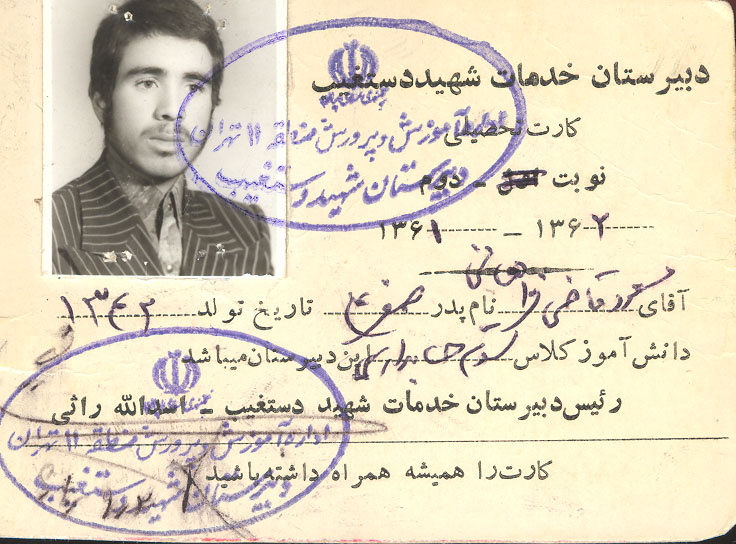 دبیرستان خدمات شهید دستغیب
کارت تحصیلی
نوبت اول - دوم
۱۳۶۱ - ۱۳۶۲
آقای نام پدر تاریخ تولد ۱۳۴۲
دانش آموز کلاس سوم حسابداری این دبیرستان میباشد
رئیس دبیرستان خدمات شهید دستغیب - اسدالله راثی
کارت را همیشه همراه داشته باشید
اداره آموزش و پرورش منطقه ۱۱ تهران
دبیرستان شهید دستغیب
اداره آموزش و پرورش منطقه ۱۱ تهران
دبیرستان شهید دستغیب